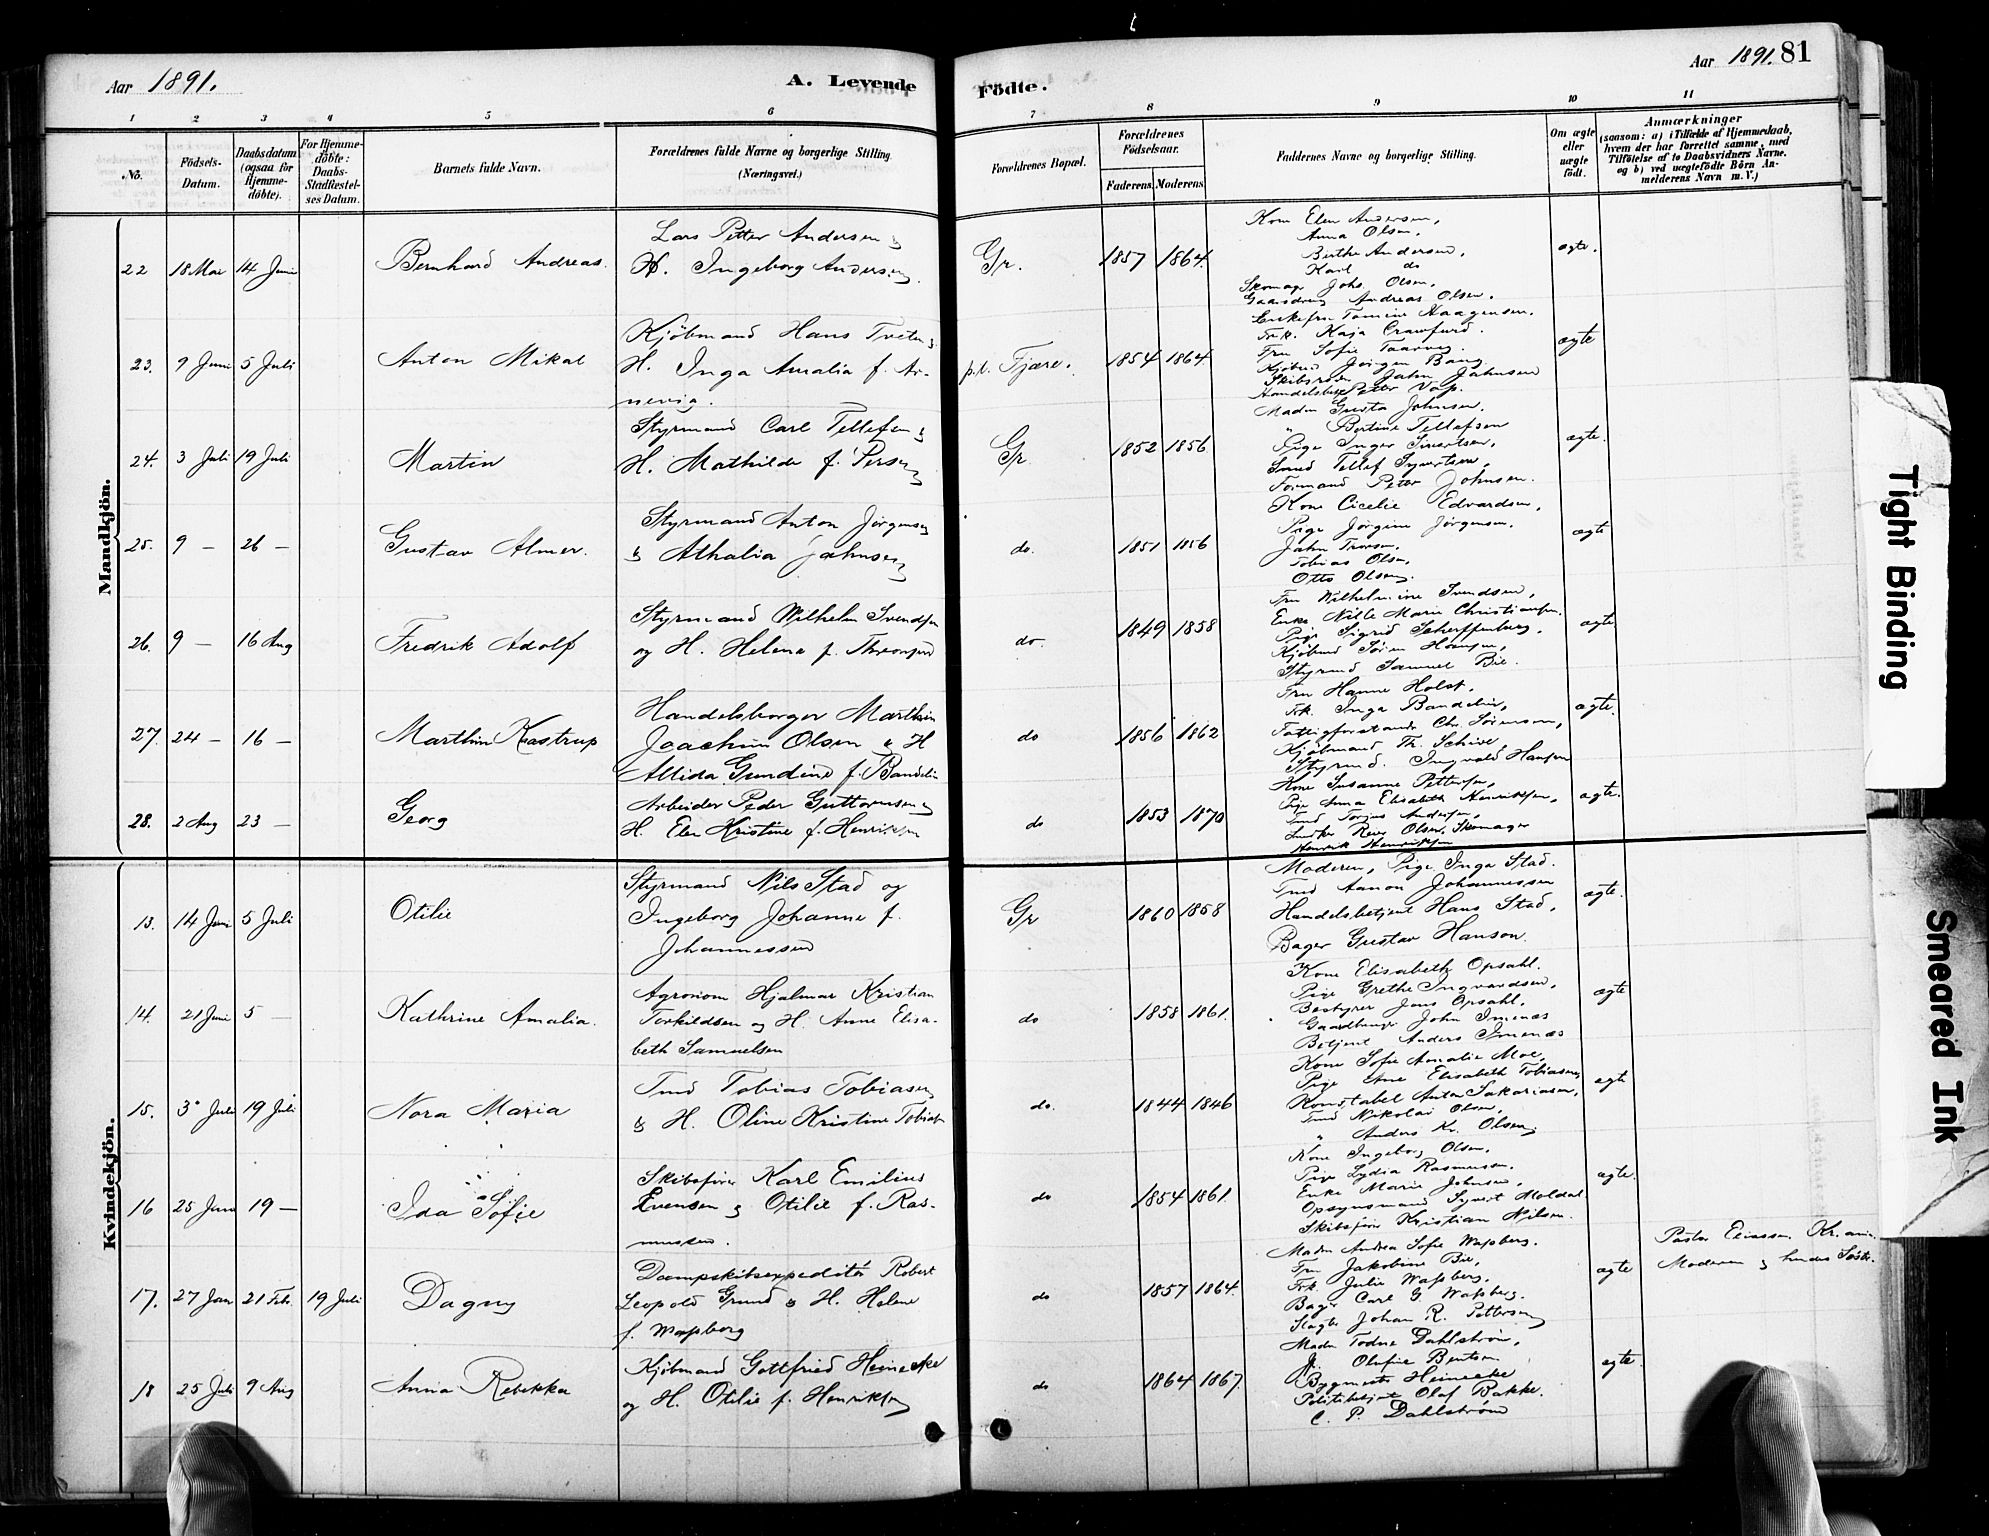 Aar 1891.
A. Levende
Födte.
Aar 1891. 81
1 2 3 4 5 6 7 8 9 10 11
No.
Födsels-Datum.
Daabsdatum (ogsaa for Hjemmedöbte).
For Hjemmedöbte: Daabs-Stadfæstelses Datum.
Barnets fulde Navn.
Forældrenes fulde Navne og borgerlige Stilling.
(Næringsvei.)
Forældrenes Bopæl.
Forældrenes Födselsaar.
Faderens. Moderens.
Faddernes Navne og borgerlige Stilling.
Om ægte eller uægte födt.
Anmærkninger
(saasom: a) i Tilfælde af Hjemmedaab, hvem der har forrettet samme, med Tilföielse af to Daabsvidners Navne. og b) ved uægtefödte Börn Anmelderens Navn m. V.)
Mandkjön.
22 18 Mai 14 Juni Bernhard Andreas.
Lars Petter Andersen &
H. Ingeborg Andersen.
Gr. 1857 1864.
Kone Elen Andersen,
Anna Olsen,
Berthe Andersen,
Karl do
Skomagr Johs. Olsen,
Gaardbrug Andreas Olsen.
ægte.
23. 9 Juni 5 Juli Anton Mikal
Kjöbmand Hans Tveten &
H. Inga Amalia f. Ar-
nevig.
p.t. Fjære. 1854 1864.
Enkefru Tomine Haagensen.
Frk. Kaja Crawfurd.
Fru Sofie Taarvig.
Kjöbmd Jörgen Bang
Skibsreder Jahn Jahnsen
Handelsbg Petter Vap.
ægte
24. 3 Juli 19 Juli Martin
Styrmand Carl Tellefsen &
H. Mathilde f. Persen
Gr. 1852 1856
Madm Gusta Johnsen.
" Bertine Tellefsen
Pige Inger Sivertsen,
Smed Tellef Syvertsen,
Formand Peter Johnsen.
ægte.
25. 9 - 26 - Gustav Almer.
Styrmand Anton Jörgensen
& Athalia Jahnsen
do. 1851 1856
Kone Cicelie Edvardsen,
Pige Jörgine Jörgensen.
Jahn Tronsen.
Tobias Olsen,
Otto Olsen.
ægte
26. 9 - 16 Aug Fredrik Adolf
Styrmand Wilhelm Svendsen
og H. Helena f. Thronsen
do. 1849 1858
Fru Wilhelmine Svendsen,
Enke Nille Marie Christiansen.
Pige Sigrid Scherffenberg,
Kjöbmd Sören Hansen,
Styrmd Samuel Bie.
ægte
27. 24 - 16 - Marthin Kastrup
Handelsborger Marthin
Joachim Olsen & H
Allida Gundine f. Bandelin
do 1856 1862
Fru Hanne Holst,
Frk. Inga Bandelin,
Fattigforstander Chr. Sörensen,
Kjöbmand Th. Schive,
Styrmd. Ingvald Hansen
ægte.
28. 2 Aug 23 - Georg
Arbeider Peder Guttormsen &
H. Elen Kristine f. Henriksen
do 1853 1870
Kone Susanne Pettersen,
Pige Anna Elisabeth Henriksen,
Tmd Torjus Andersen,
Snedker Reier Olsen, Skomager
Henrik Henriksen
ægte.
Kvindekjön.
13. 14 Juni 5 Juli Otilie
Styrmand Nils Stad og
Ingeborg Johanne f.
Johannessen
Gr 1860 1858
Moderen, Pige Inga Stad.
Tmd Aanon Johannessen
Handelsbetjent Hans Stad,
Bager Gustav Hanson.
ægte.
14. 21 Juni 5 - Kathrine Amalia.
Agronom Hjalmar Kristian
Torkildsen og H. Anne Elisa-
beth Samuelsen
do 1858 1861.
Kone Elisabeth Opsahl.
Pige Grethe Ingvardsen,
Bestyrer Jens Opsahl,
Gaardbruger John Imenæs
Betjent Anders Imenæs
ægte
15. 3 Juli 19 Juli Nora Maria
Tmd Tobias Tobiasen
& H. Oline Kristine Tobias
do. 1844 1846
Kone Sofie Amalie Moe,
Pige Ane Elisabeth Tobiasen,
Konstabel Anton Sakariasen,
Tmd Nikolai Olsen,
" Anders Kr. Olsen.
ægte
16 25 Juni 19 - Ida Sofie
Skibsförer Karl Emilius
Evensen & Otilie f. Ras-
mussen.
do 1854 1861.
Kone Ingeborg Olsen.
Pige Lydia Rasmussen.
Enke Marie Johnsen,
Opsynsmand Syvert Moldal
Skibsförer Kristian Nilsen.
ægte.
17. 27 Jan 21 Feb. 19 Juli Dagny
Dampskibsexpeditör Robert
Leopold Grund & H. Helene
f. Wassberg
do 1857 1864.
Madm Andrea Sofie Wassberg.
Fru Jakobine Bie,
Frk. Julie Wassberg.
Bager Carl G. Wassberg.
Slagter Johan R. Pettersen
ægte
Pastor Eriassen Kr.ania
Moderen & hendes Söster
18 25 Juli 9 Aug Anna Rebekka
Kjöbmand Gottfried Heinecke
og H. Otilie f. Henriksen
do 1864 1867.
Madm Todne Dahlström,
Fr. Olufine Bentsen
Bygmester Heinecke
Politibetjent Olaf Bakke.
C. P. Dahlström
ægte.
Tight Binding
Smeared Ink